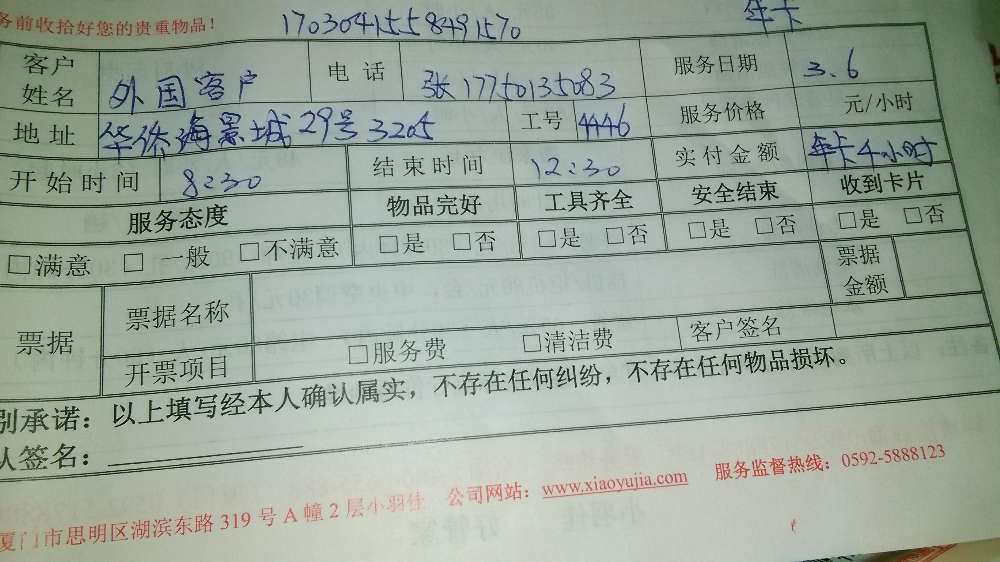 务前收拾好您的贵重物品！ 1703041558491570 年卡
客户姓名 外国客户 电 话 张17750135083 服务日期 3.6
地 址 华侨海景城29号3205 工号 4446 服务价格 元/小时
开 始 时 间 8:30 结 束 时 间 12:30 实 付 金 额 年卡4小时
服务态度 物品完好 工具齐全 安全结束 收到卡片
□满意 □ 一般 □不满意 □是 □否 □是 □否 □是 □否 □是 □否
票据 票据名称 票据金额
开票项目 □服务费 □清洁费 客户签名
别承诺：以上填写经本人确认属实，不存在任何纠纷，不存在任何物品损坏。
人签名：
厦门市思明区湖滨东路 319 号 A 幢 2 层小羽佳 公司网站：www.xiaoyujia.com 服务监督热线：0592-5888123